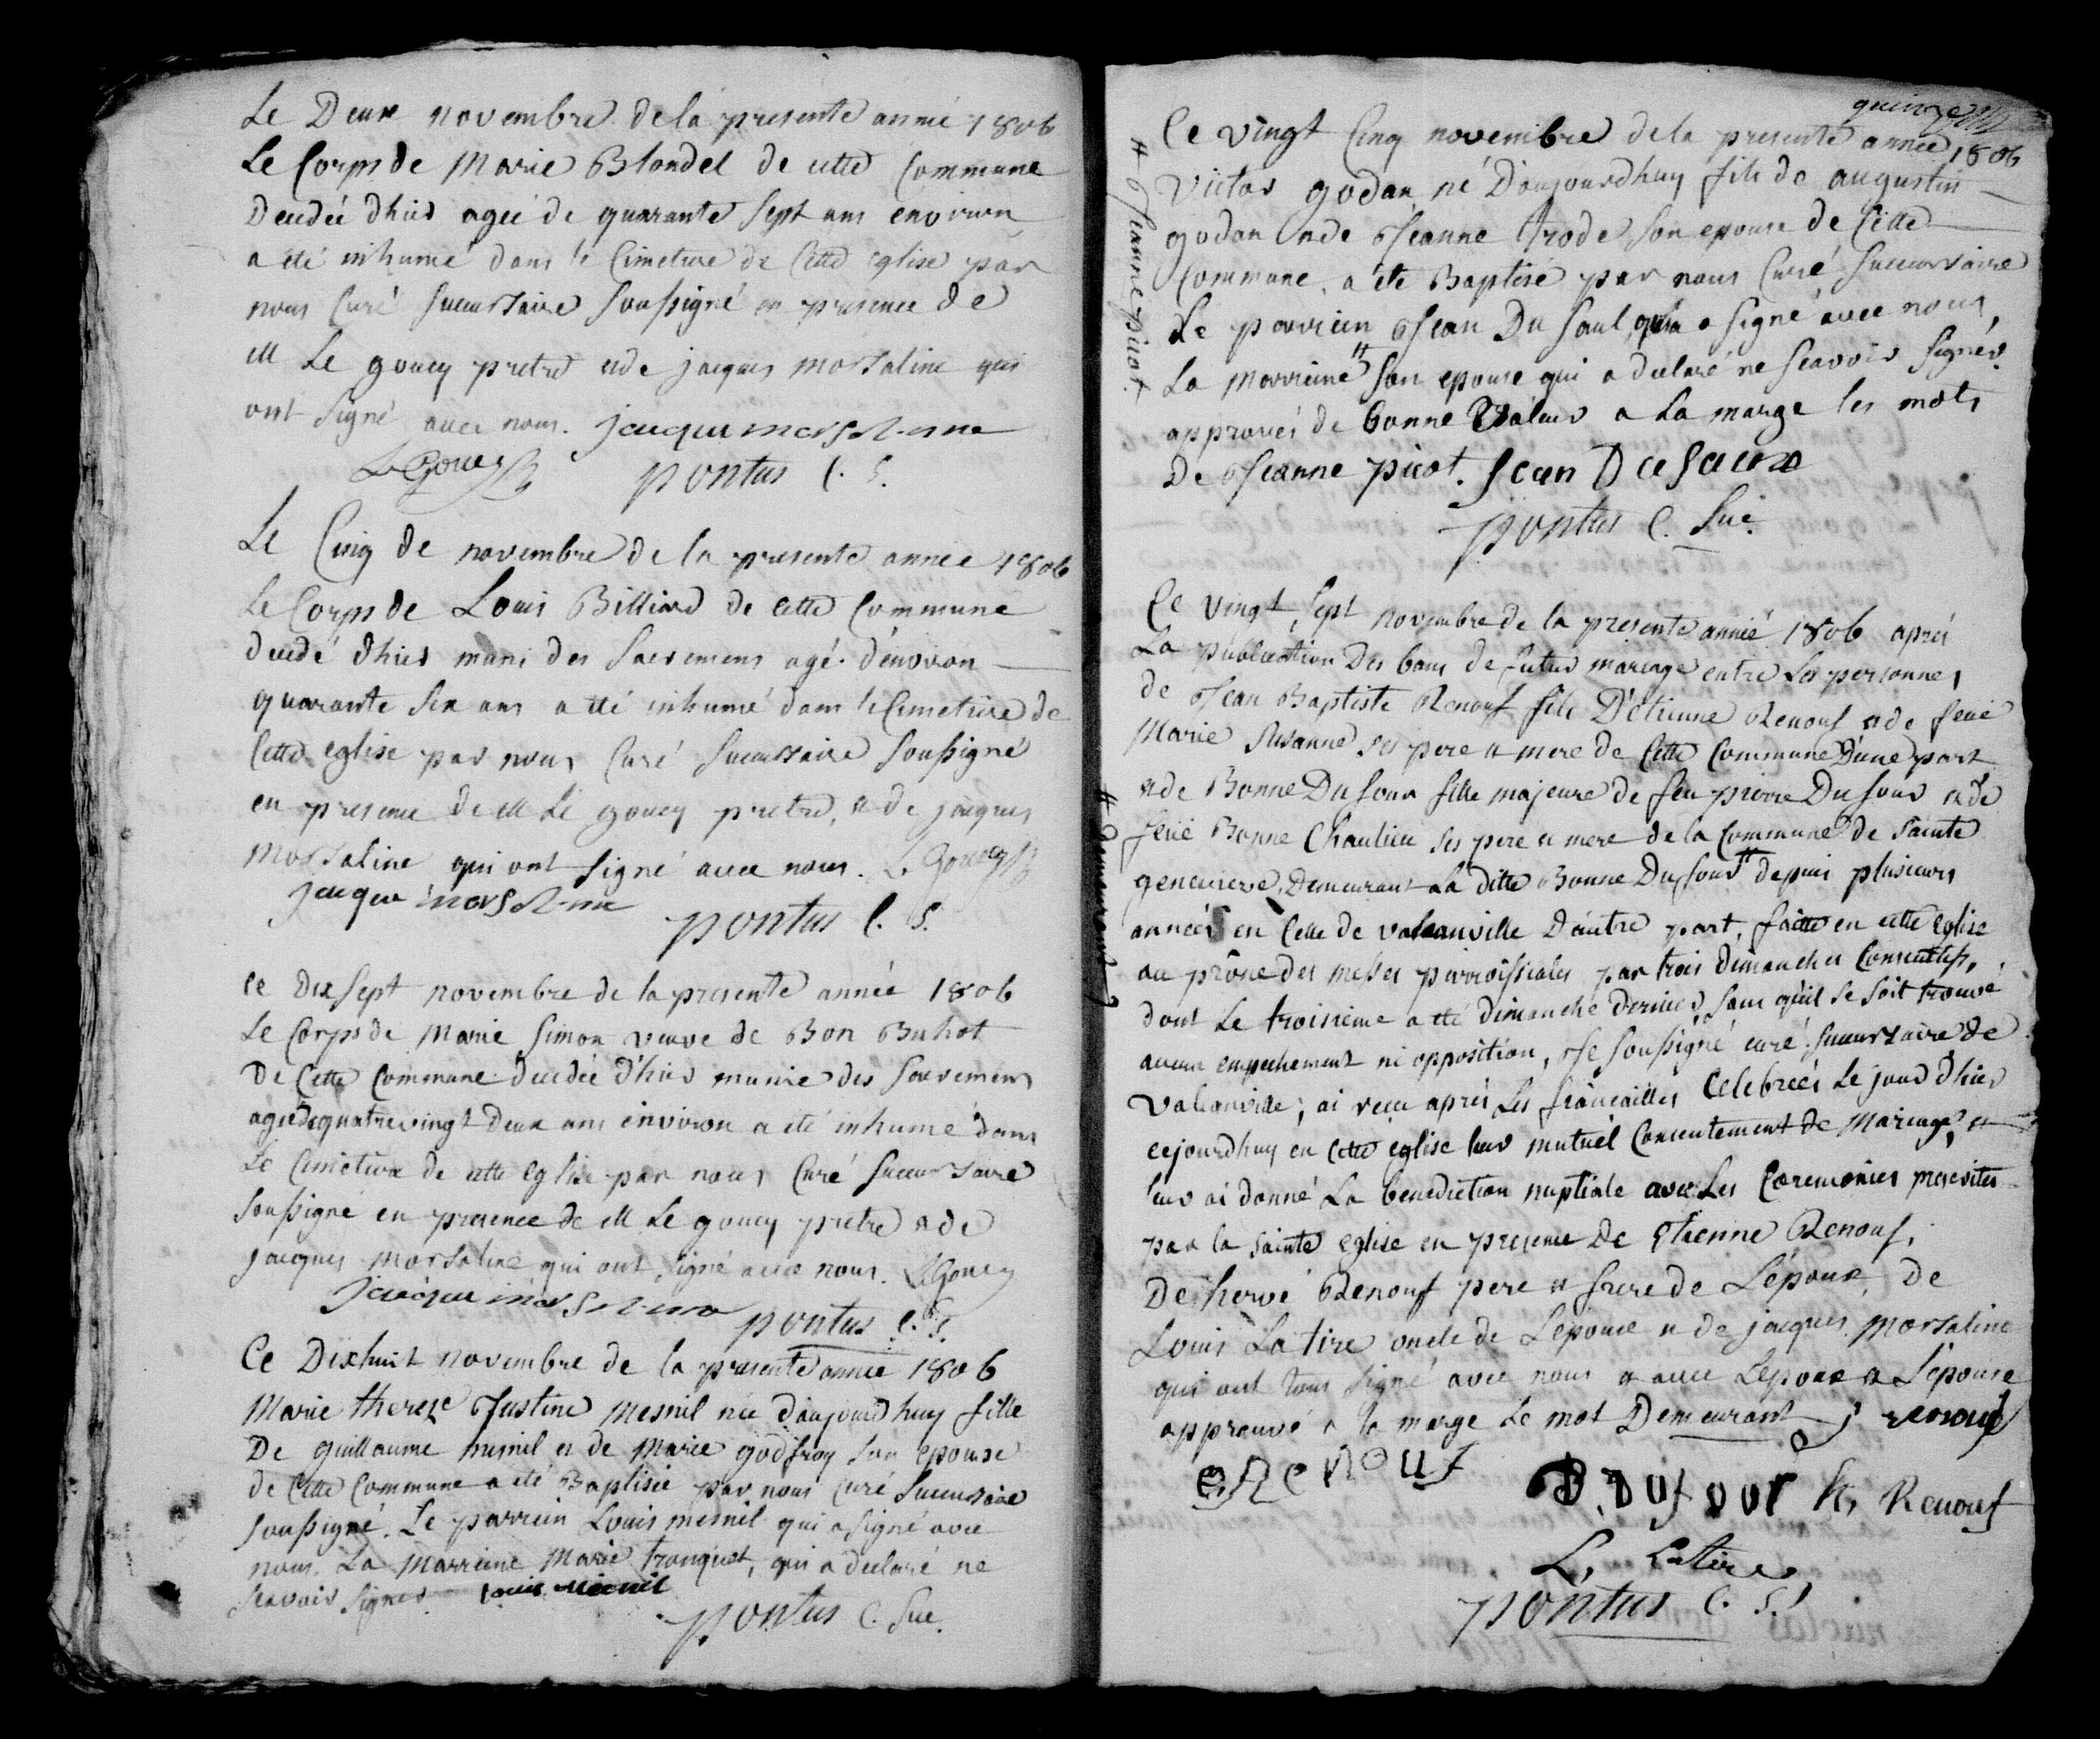 Le Deux novembre de la presente année 1806
Le Corps de Marie Blondel de cette Commune
Decedée d'hier agée de quarante sept ans environ
a été inhumé dans le Cimetiere de Cette eglise par
nous Curé succursaire soussigné en presence de
M Le gouey pretre et de jacques morsaline qui
ont signé avec nous. jacque morsaline
LeGouey pontus C. S.
Le Cinq de novembre de la presente année 1806
Le Corps de Louis Billiard de Cette Commune
decedé d'hier muni des Sacremens agé d'environ
quarante six ans a été inhumé dans le Cimetiere de
Cette eglise par nous Curé succursaire soussigné
en presence de M Le gouey pretre, et de jacques
Morsaline qui ont signé avec nous. LeGouey
jacque morsaline pontus C. S.
ce dix sept novembre de la presente année 1806
Le Corps de Marie Simon veuve de Bon Buhot
De Cette Commune decedée d'hier munie des Sacremens
agée de quatre vingt Deux ans environ a été inhumé dans
Le Cimetiere de cette Eglise par nous Curé succursaire
soussigné en presence de M Le gouey pretre et de
jacques Morsaline qui ont signé avec nous. LeGouey
jacque morsaline pontus C. S.
Ce Dixhuit novembre de la presente année 1806
Marie thereze Justine Mesnil née d'aujourdhuy fille
De guillaume mesnil et de Marie godfroy son epouse
de Cette Commune a été Baptisée par nous Curé succursaire
soussigné. Le parrein Louis mesnil qui a signé avec
nous. La Marreine Marie tronquet, qui a declaré ne
scavoir signer. Louis Mesnil
pontus C. Suc.
quinze
Ce vingt Cinq novembre de la presente année 1806
victor godan né D'aujourdhuy fils de augustin
godan et de Jeanne trode son epouse de Cette
Commune, a été Baptisé par nous Curé succursaire
Le parrein Jean Du Saul, qui a signé avec nous,
La Marreine # son epouse qui a declaré ne scavoir signer.
approuvés de bonne valeur a La marge les mots
De Jeanne picot. Jean Du Saux
pontus C. Suc.
# Jeanne picot.
Ce vingt sept novembre de la presente année 1806 après
La publication Des bans de futur mariage entre Les personnes
de Jean Baptiste Renouf fils D'étienne Renouf et de feüe
Marie Susanne ses pere et mere de Cette Commune D'une part
et de Bonne Du four fille majeure de feu pierre Du four et de
feüe Bonne Chaulieu ses pere et mere de la Commune de Sainte
genevieve, Demeurant La ditte Bonne Du four # depuis plusieurs
années en Celle de valcanville D'autre part, faitte en cette Eglise
au prône des messes parroissiales par trois dimanches Consecutifs,
dont Le troisieme a été dimanche dernier, sans qu'il se soit trouvé
aucun empechement ni opposition, Je soussigné curé succursaire de
valcanville; ai recu après Les fiancailles Celebrées Le jour d'hier
cejourdhuy en Cette eglise leur mutuel Consentement de Mariage, et
leur ai donné La benediction nuptiale avec Les Ceremonies prescrites
par la Sainte eglise en presence De Etienne Renouf,
De hervé Renouf pere et frere de L'époux, de
Louis La tire oncle de L'épouse et de jacques Morsaline
qui ont tous signé avec nous et avec L'epoux et L'épouse
approuvé a la marge Le mot Demeurant j renouf
# demeurant
e Renouf B. Dufour h, Renouf
L, Latire,
pontus C. S.